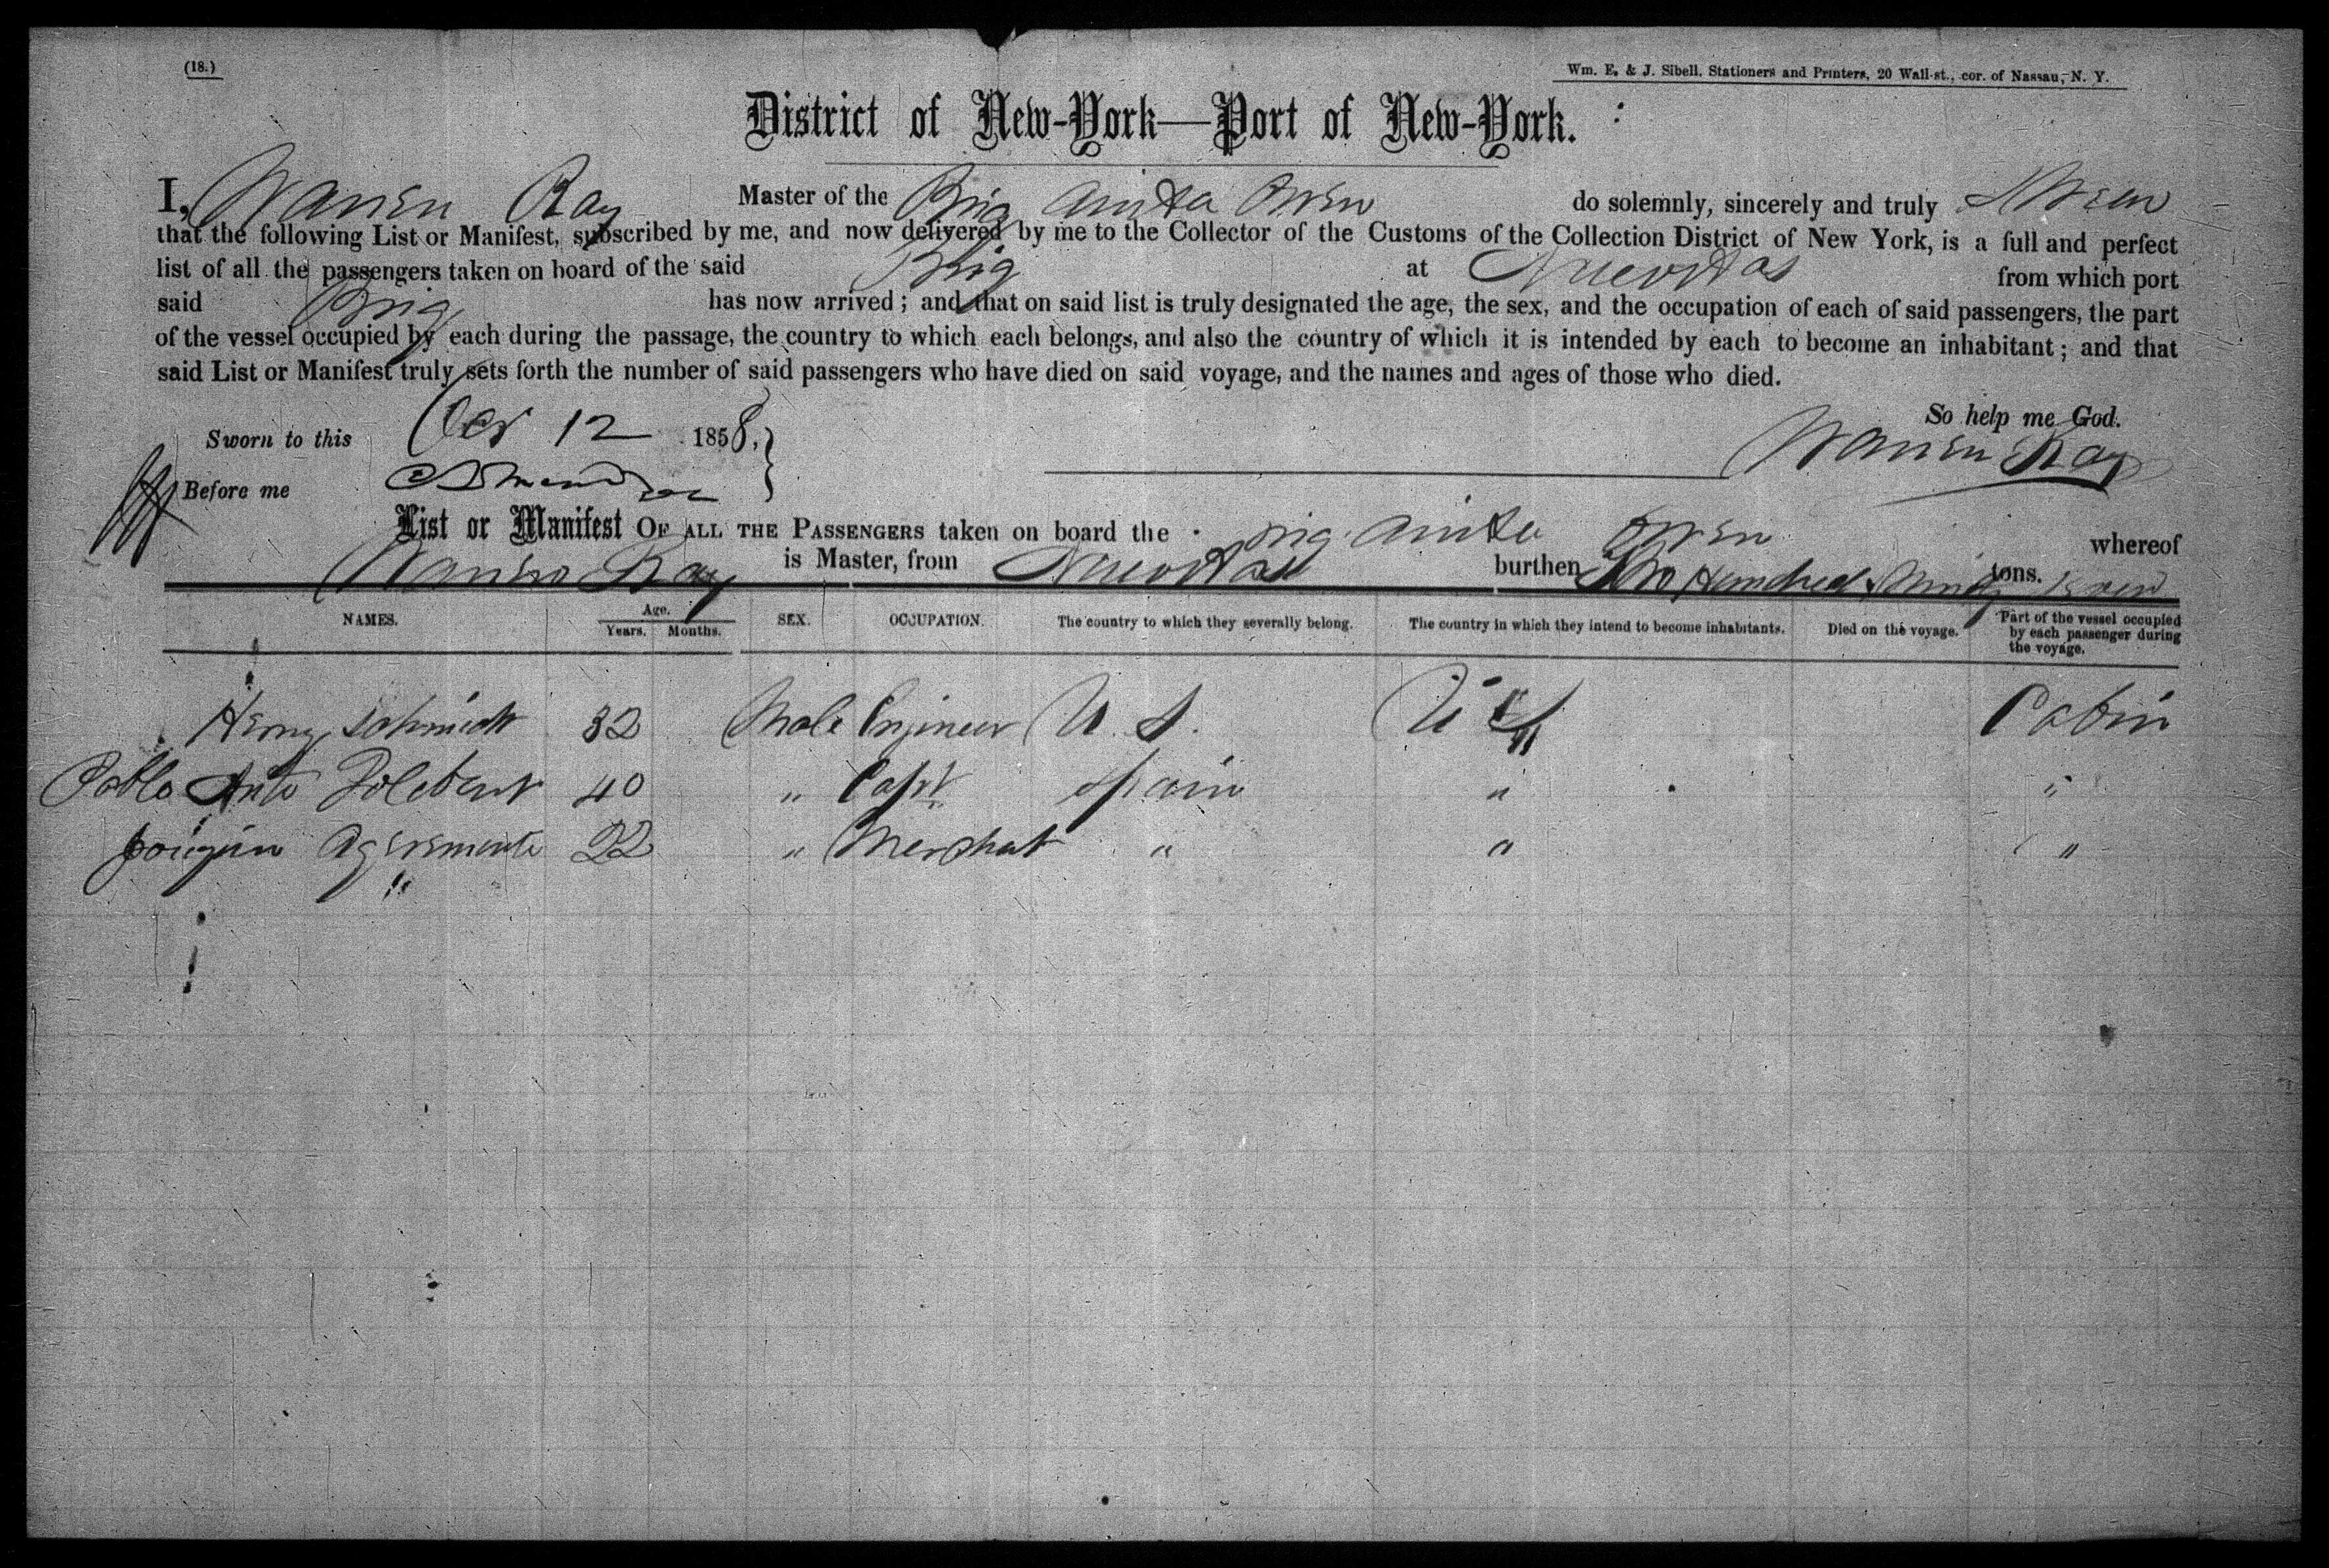 (18.)
Wm. E. & J. Sibell, Stationers and Printers, 20 Wall-st., cor. of Nassau, N. Y.
District of New-York—Port of New-York.
I, Warren Ray Master of the Brig Anita Owen do solemnly, sincerely and truly Swear
that the following List or Manifest, subscribed by me, and now delivered by me to the Collector of the Customs of the Collection District of New York, is a full and perfect
list of all the passengers taken on board of the said Brig at Nuevitas from which port
said Brig has now arrived; and that on said list is truly designated the age, the sex, and the occupation of each of said passengers, the part
of the vessel occupied by each during the passage, the country to which each belongs, and also the country of which it is intended by each to become an inhabitant; and that
said List or Manifest truly sets forth the number of said passengers who have died on said voyage, and the names and ages of those who died.
So help me God.
Sworn to this Oct 12 1858,
Warren Ray
Before me
List or Manifest OF ALL THE PASSENGERS taken on board the Brig Anita Owen whereof
Warren Ray is Master, from Nuevitas burthen Two Hundred & Ninety tons.
NAMES. Age. Years. Months. SEX. OCCUPATION. The country to which they severally belong. The country in which they intend to become inhabitants. Died on the voyage. Part of the vessel occupied by each passenger during the voyage.
Henry Schmidt 32 Male Engineer U. S. U S Cabin
Pablo Anto 40 " Capt Spain " "
22 " Merchat " " "